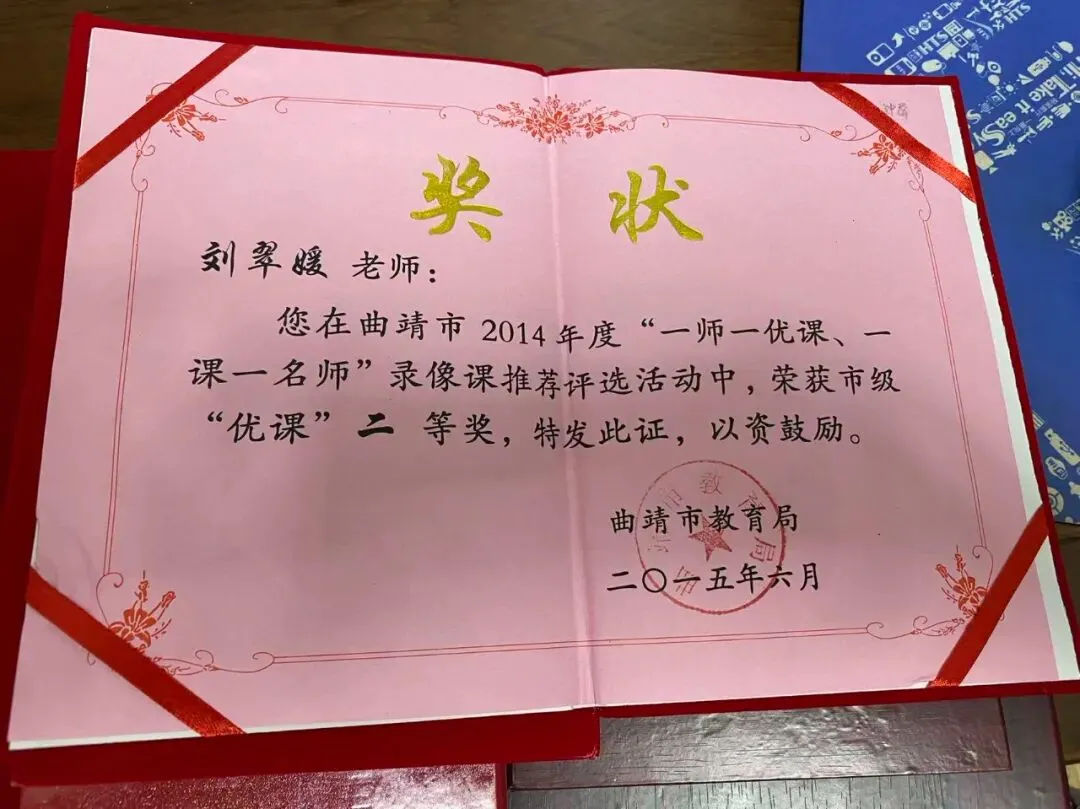 奖 状
刘翠媛 老师：
您在曲靖市 2014 年度“一师一优课、一
课一名师”录像课推荐评选活动中，荣获市级
“优课” 二 等奖，特发此证，以资鼓励。
曲靖市教育局
二〇一五年六月
Take it easy